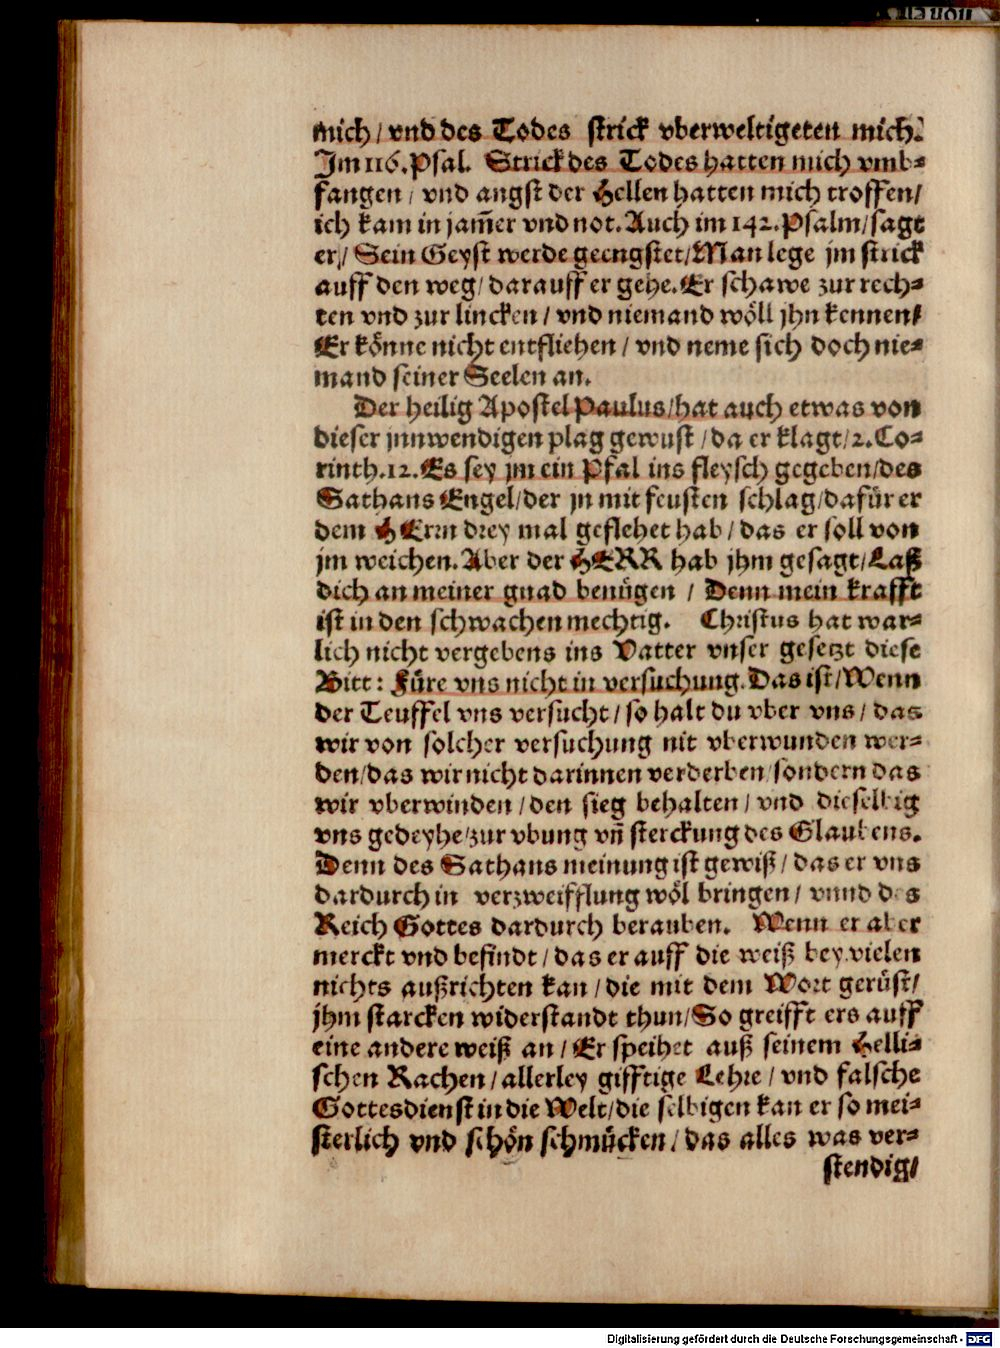 mich / vnd des Todes strick vberweltigeten mich.
Im 116. Psal. Strick des Todes hatten mich vmb-
fangen / vnd angst der Hellen hatten mich troffen /
ich kam in jam̃er vnd not. Auch im 142. Psalm / sagt
er / Sein Geyst werde geengstet / Man lege jm strick
auff den weg / darauff er gehe. Er schawe zur rech-
ten vnd zur lincken / vnd niemand wöll jhn kennen /
Er könne nicht entfliehen / vnd neme sich doch nie-
mand seiner Seelen an.
Der heilig Apostel Paulus / hat auch etwas von
dieser jnnwendigen plag gewust / da er klagt / 2. Co-
rinth. 12. Es sey jm ein Pfal ins fleysch gegeben / des
Sathans Engel / der jn mit feusten schlag / dafür er
dem HErrn drey mal geflehet hab / das er soll von
jm weichen. Aber der HERR hab jhm gesagt / Laß
dich an meiner gnad benügen / Denn mein krafft
ist in den schwachen mechtig. Christus hat war-
lich nicht vergebens ins Vatter vnser gesetzt diese
Bitt: Füre vns nicht in versuchung. Das ist / Wenn
der Teuffel vns versucht / so halt du vber vns / das
wir von solcher versuchung nit vberwunden wer-
den / das wir nicht darinnen verderben / sondern das
wir vberwinden / den sieg behalten / vnd dieselbig
vns gedeyhe / zur vbung vñ sterckung des Glaubens.
Denn des Sathans meinung ist gewiß / das er vns
dardurch in verzweifflung wöl bringen / vnnd des
Reich Gottes dardurch berauben. Wenn er aber
merckt vnd befindt / das er auff die weiß bey vielen
nichts außrichten kan / die mit dem Wort gerüst /
jhm starcken widerstandt thun / So greifft ers auff
eine andere weiß an / Er speihet auß seinem Helli-
schen Rachen / allerley gifftige Lehre / vnd falsche
Gottesdienst in die Welt / die selbigen kan er so mei-
sterlich vnd schön schmücken / das alles was ver-
stendig /
Digitalisierung gefördert durch die Deutsche Forschungsgemeinschaft - DFG